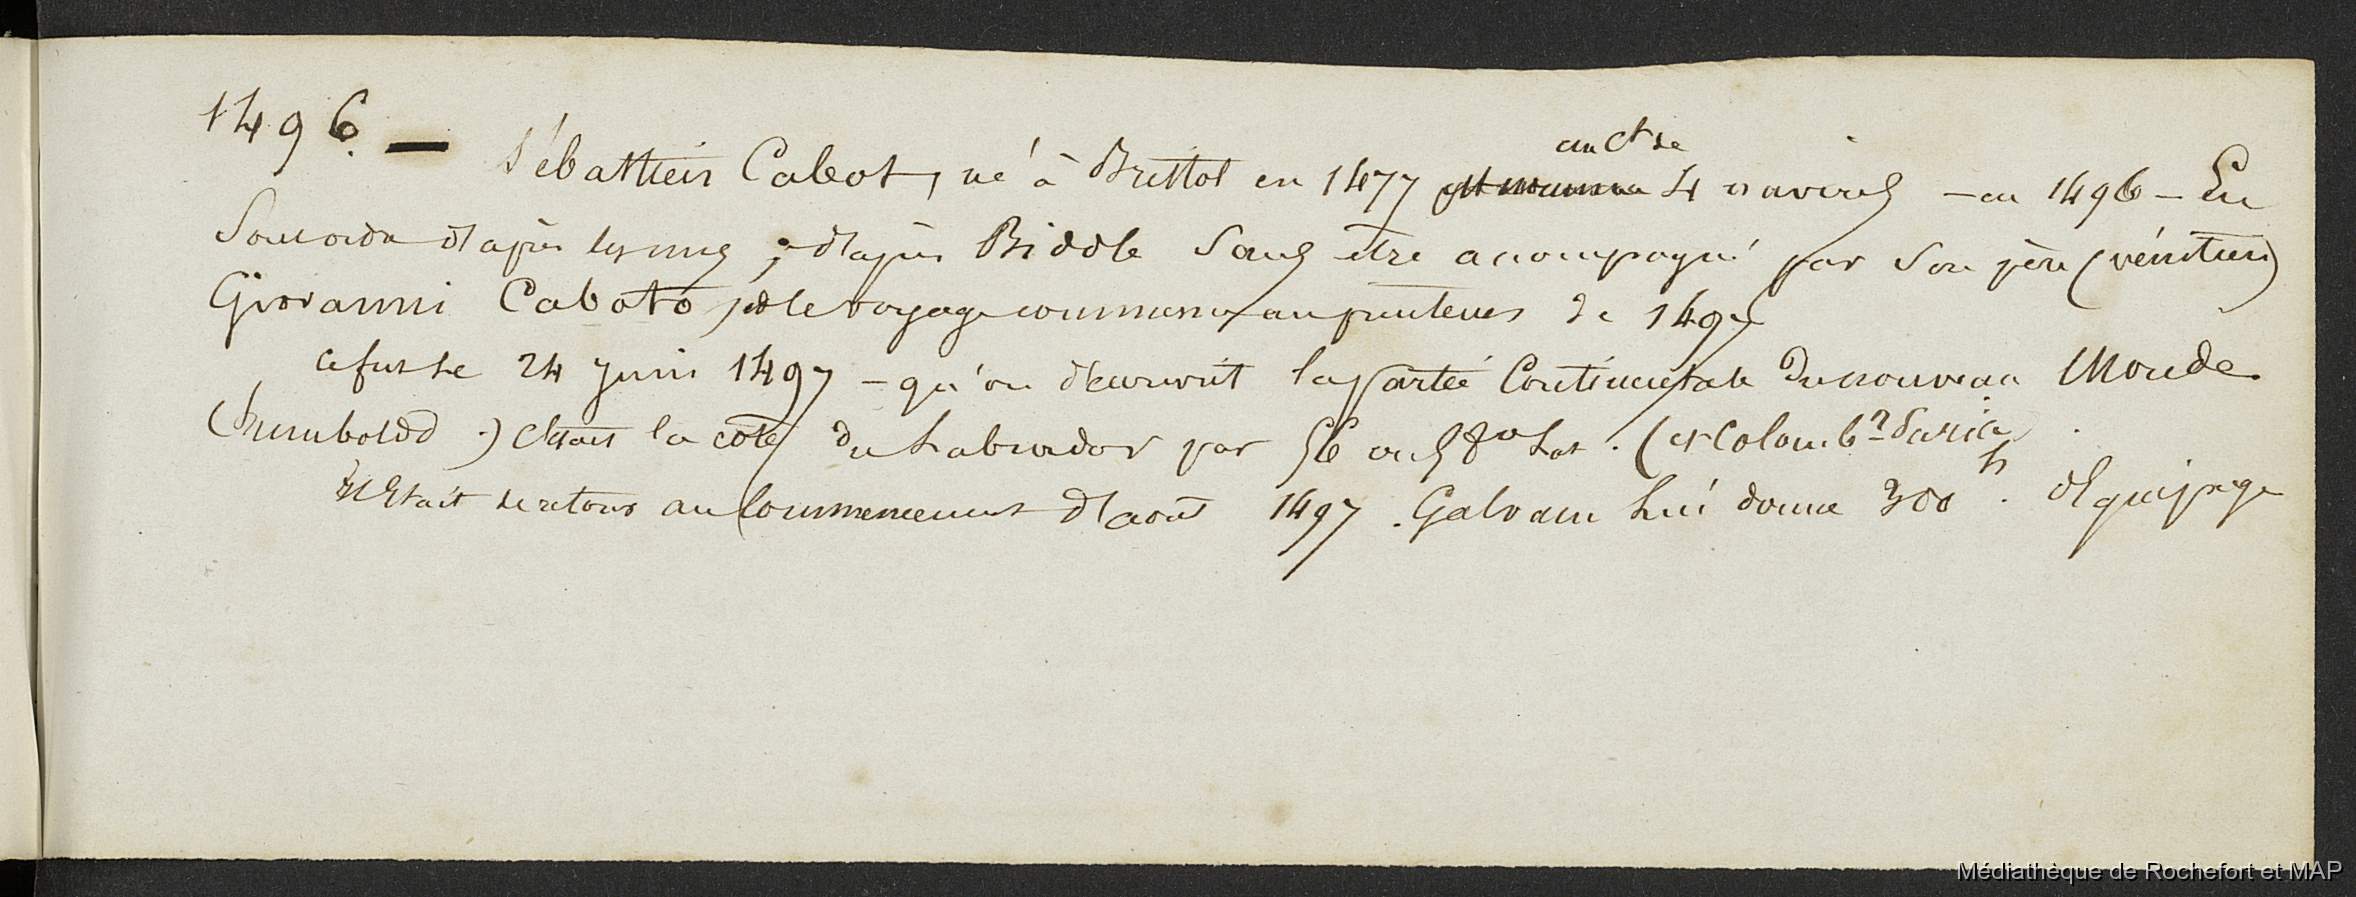 1496. —
Sébastien Cabot, né à Bristol en 1477 au Ct de 4 navires – en 1496 – En
Sous ordre d'après les uns ; d'après Biddle sans être acompagné par son père (vénitien)
Giovanni Caboto, et le voyage commença au printems de 1497
ce fut le 24 juin 1497 – qu'on découvrit la partie Continentale du nouveau Monde
(humboldt.) c'était la côte du Labrador par 56 ou 58° Lat. (et Colomb? Paria)
il était de retour au Commencement d'aout 1497. Galvam lui donne 300 h. d'Equipage
Médiathèque de Rochefort et MAP